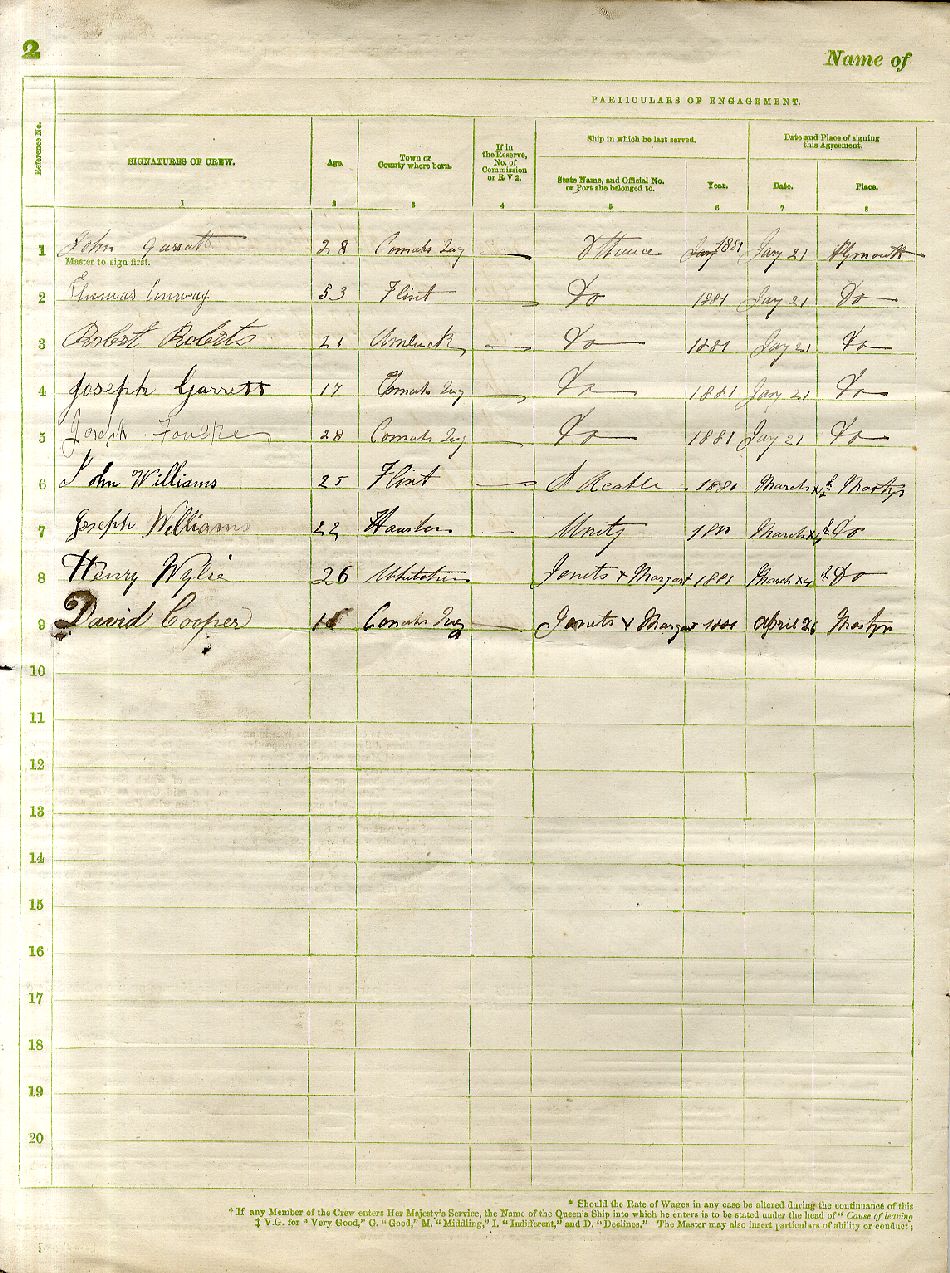 2
Name of
PARTICULARS OF ENGAGEMENT.
Reference No.
SIGNATURES OF CREW.
Age.
Town or County where born.
If in the Reserve, No. of Commission or R V 2.
Ship in which he last served.
Date and Place of signing this Agreement.
State Name, and Official No. or Port she belonged to.
Year.
Date.
Place.
1 2 3 4 5 6 7 8
1 John Garratt 28 Connahs Quay 1881 Jany 21 Plymouth
Master to sign first.
2 Thomas Conway 53 Flint Do 1881 Jany 21 Do
3 Robert Roberts 21 Amluck Do 1881 Jany 21 Do
4 Joseph Garrett 17 Connahs Quay Do 1881 Jany 21 Do
5 Joseph 28 Connahs Quay Do 1881 Jany 21 Do
6 John Williams 25 Flint 1881 March Mostyn
7 Joseph Williams 22 Unity March Do
8 Henry Wylie 26 Janets & Margart 1881 March Do
9 David Cooper Connahs Quay Janets & Margart 1881 April 26 Mostyn
10
11
12
13
14
15
16
17
18
19
20
* Should the Rate of Wages in any case be altered during the continuance of this
† If any Member of the Crew enters Her Majesty's Service, the Name of the Queen's Ship into which he enters is to be stated under the head of "Cause of leaving
‡ V.G. for "Very Good," G. "Good," M. "Middling," I. "Indifferent," and D. "Declines." The Master may also insert particulars of ability or conduct;